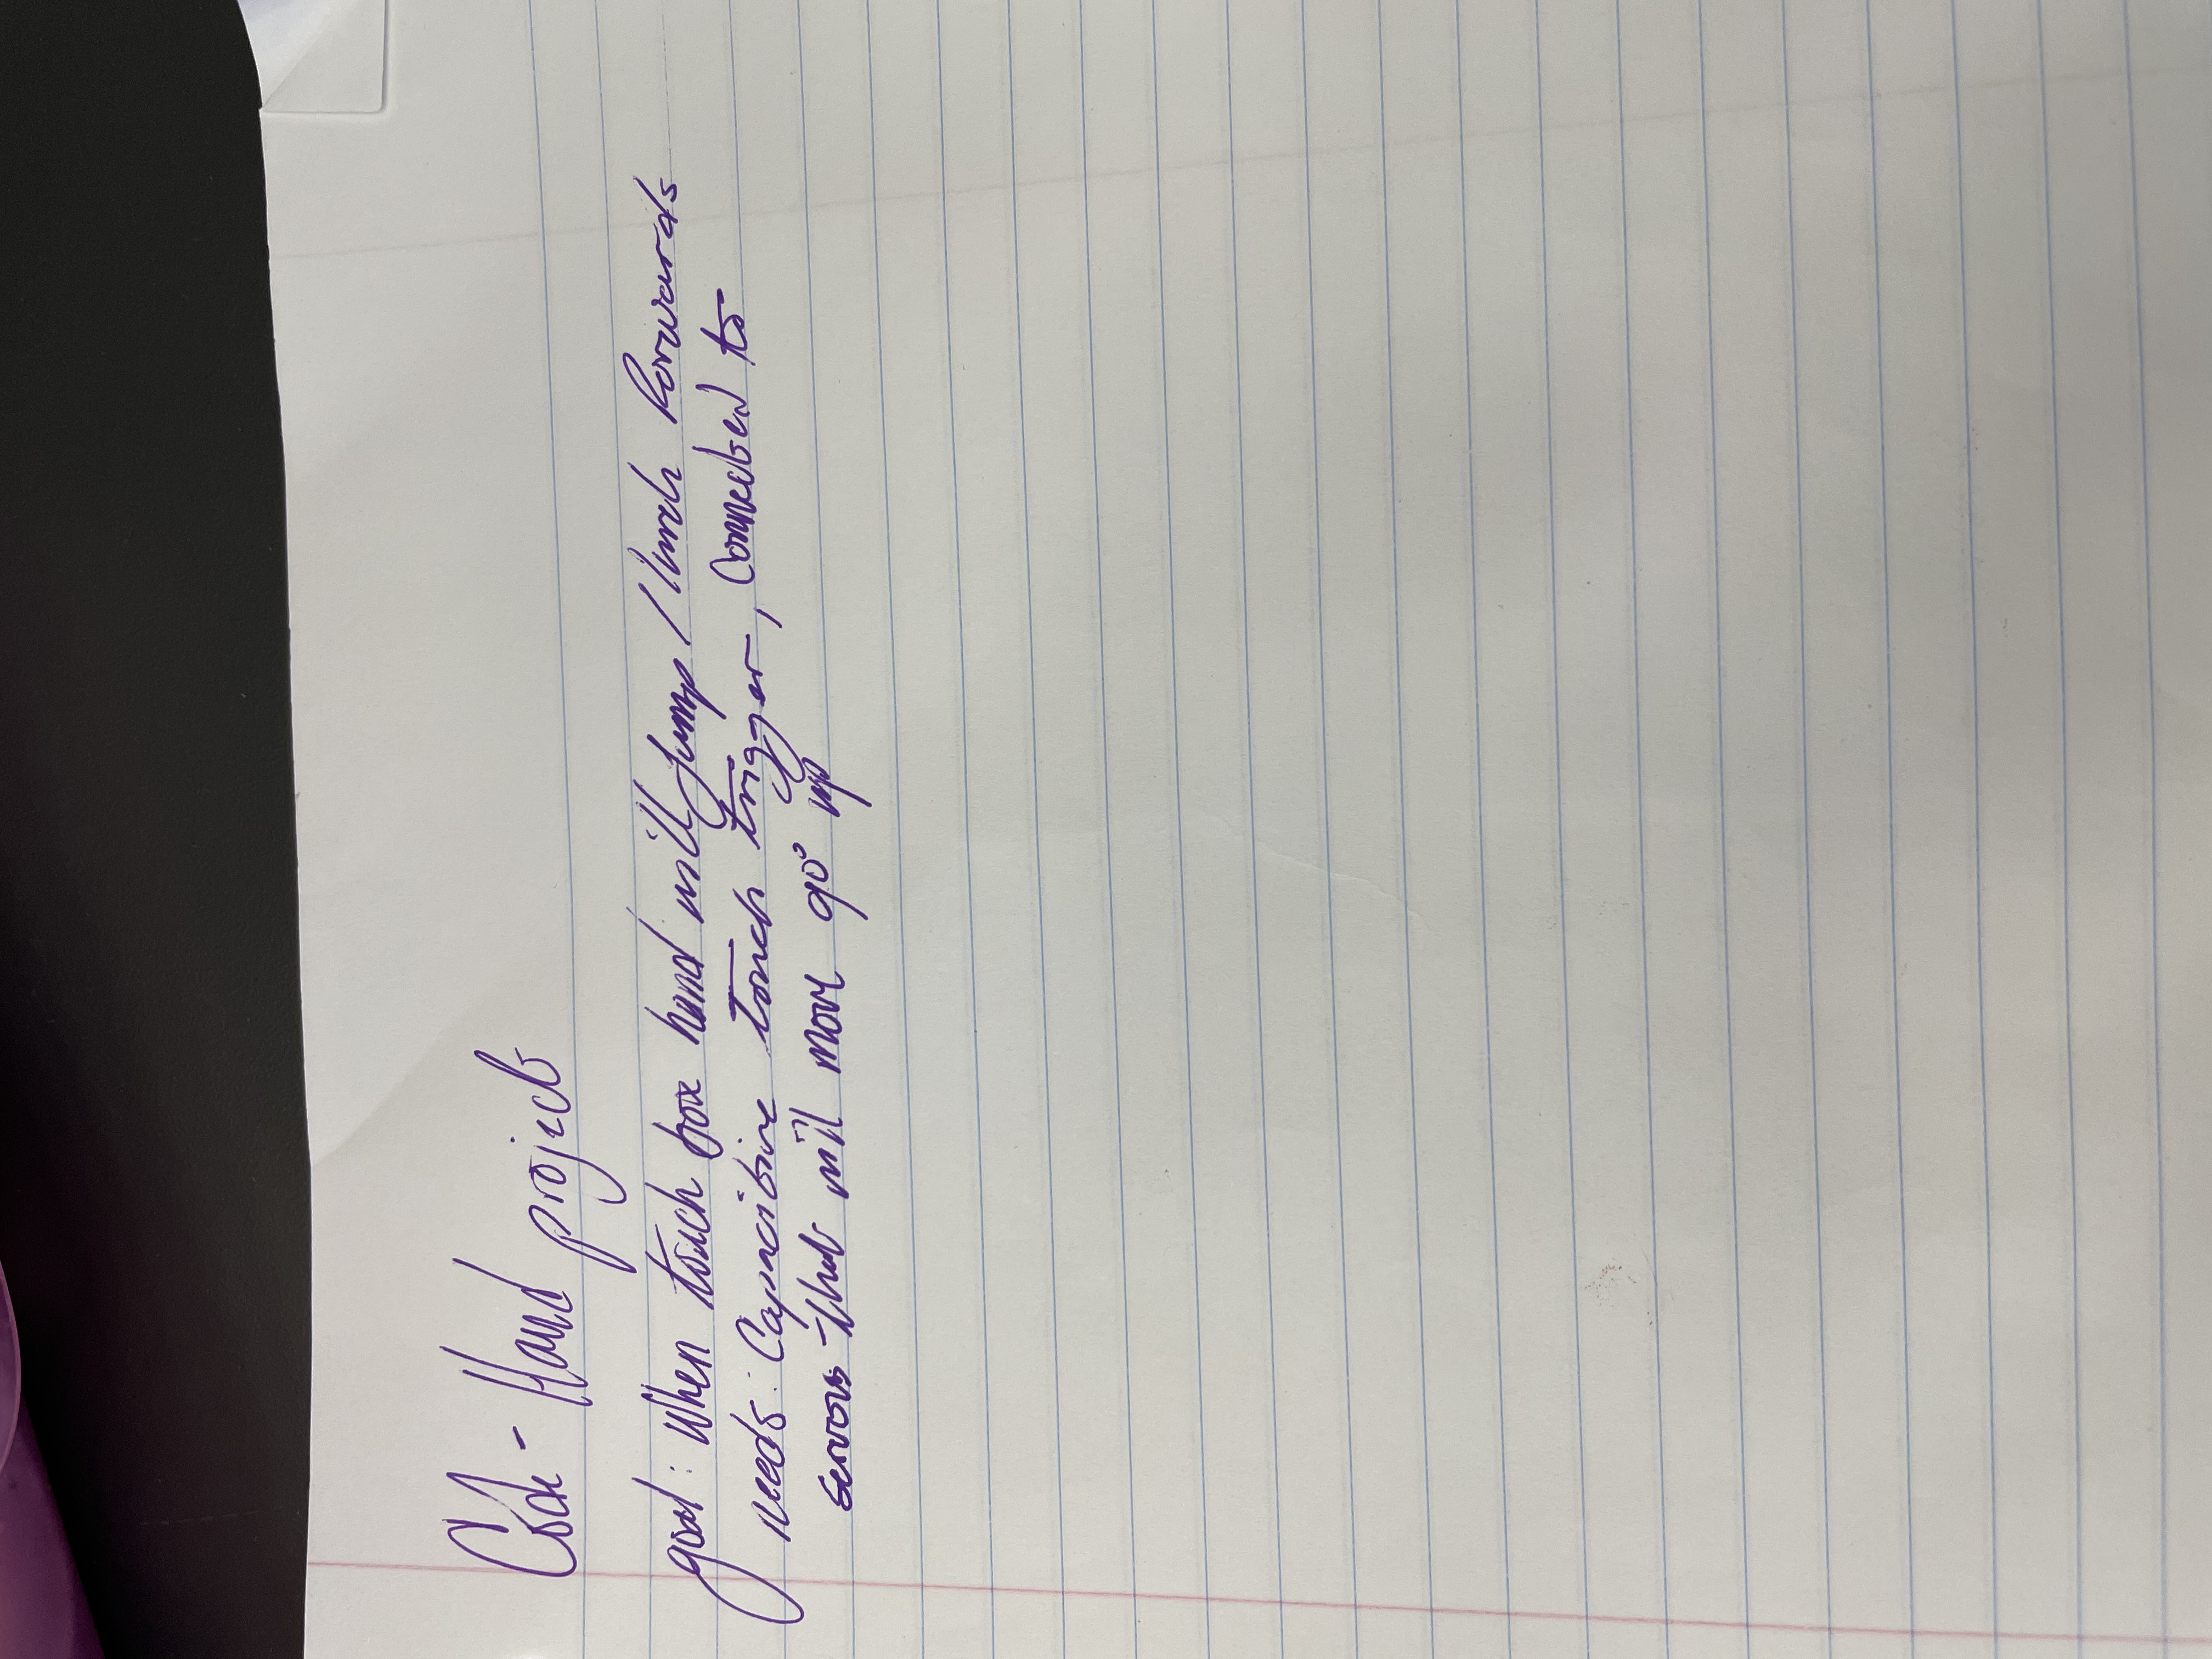 Code - Hand project
goal: When touch box hand will jump / lurch forwards
needs: Capacitive touch trigger, connected to
servos that will move 90° up